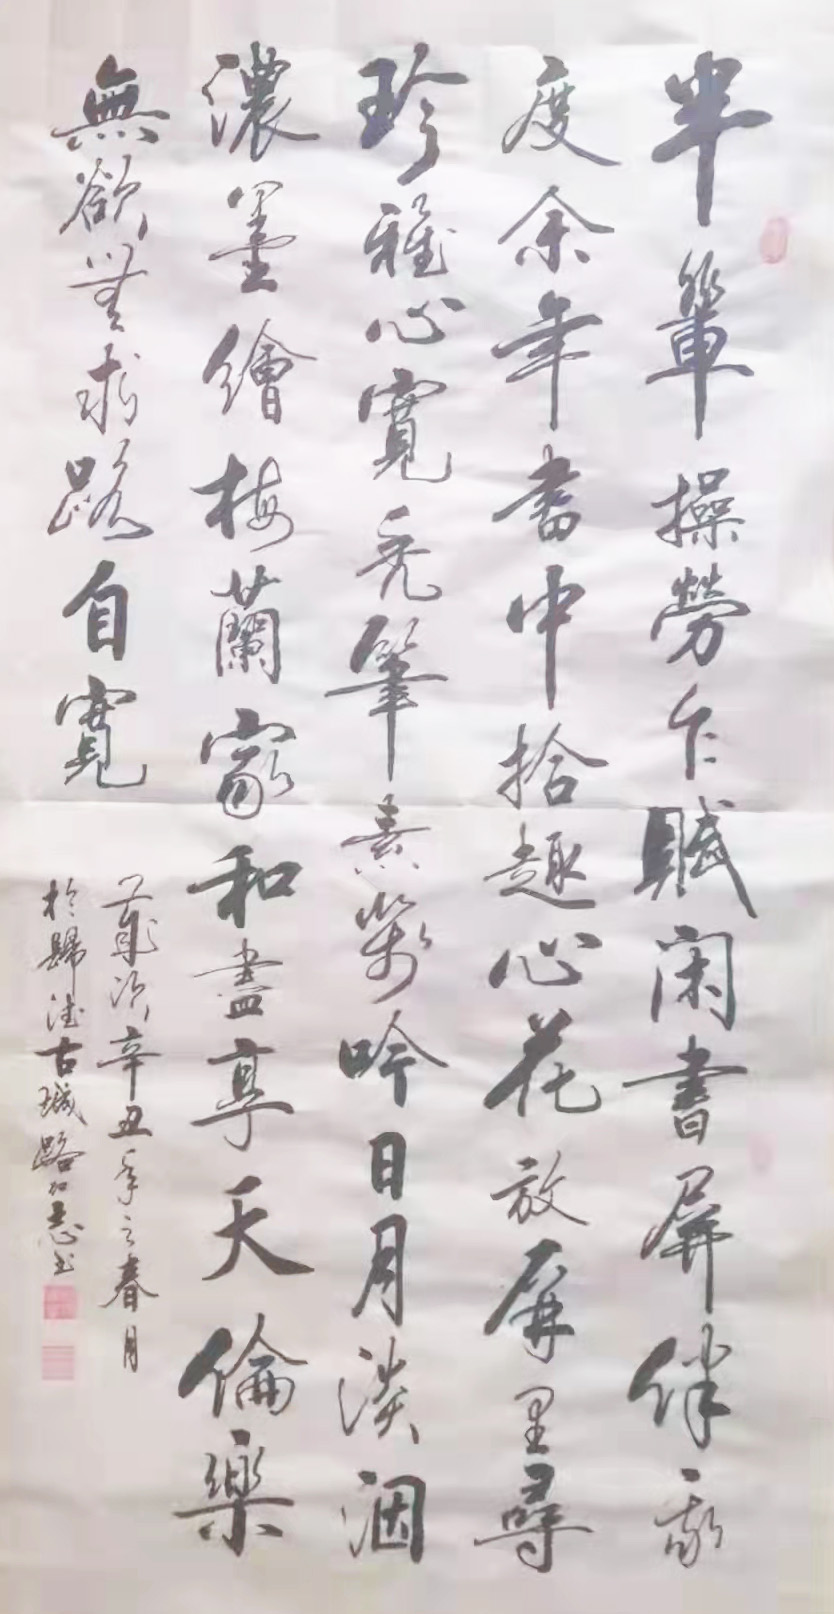 半輩操勞乍賦闲書屏伴我
度余年書中拾趣心花放屏里尋
珍雅心寬禿筆素箋吟日月淡洇
濃墨繪梅蘭家和盡享天倫樂
無欲無求路自寬
歲次辛丑年之春月
於歸德古城路心志书